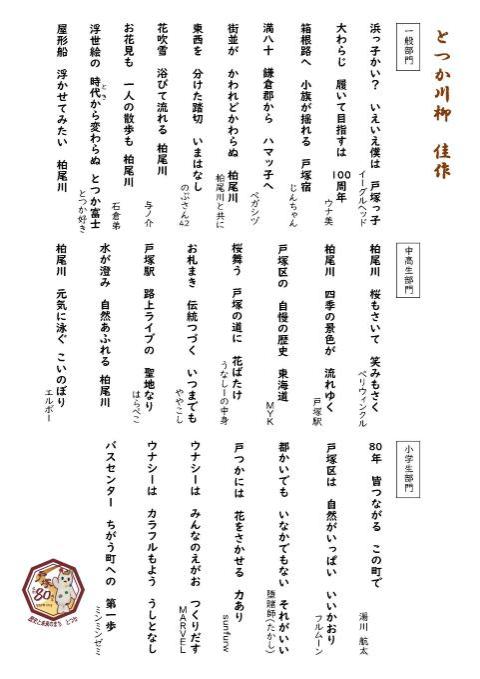 とつか川柳 佳作
一般部門
浜っ子かい? いえいえ僕は 戸塚っ子
イーグルヘッド
大わらじ 履いて目指すは 100周年
ウナ美
箱根路へ 小旗が揺れる 戸塚宿
じんちゃん
満八十 鎌倉郡から ハマッ子へ
ペガシヅ
街並が かわれどかわらぬ 柏尾川
柏尾川と共に
東西を 分けた踏切 いまはなし
のぶさん42
花吹雪 浴びて流れる 柏尾川
与ノ介
お花見も 一人の散歩も 柏尾川
石倉弟
浮世絵の 時代から変わらぬ とつか富士
とき
とつか好き
屋形船 浮かせてみたい 柏尾川
中高生部門
柏尾川 桜もさいて 笑みもさく
ペリウィンクル
柏尾川 四季の景色が 流れゆく
戸塚駅
戸塚区の 自慢の歴史 東海道
MYK
桜舞う 戸塚の道に 花ばたけ
うなしーの中身
お札まき 伝統つづく いつまでも
ややこし
戸塚駅 路上ライブの 聖地なり
はらぺこ
水が澄み 自然あふれる 柏尾川
柏尾川 元気に泳ぐ こいのぼり
エルボー
小学生部門
80年 皆つながる この町で
湯川 航太
戸塚区は 自然がいっぱい いいかおり
フルムーン
都かいでも いなかでもない それがいい
堕賭師(たかし)
戸つかには 花をさかせる 力あり
sunfurw
ウナシーは みんなのえがお つくりだす
MARVEL
ウナシーは カラフルもよう うしとなし
バスセンター ちがう町への 第一歩
ミンミンゼミ
戸塚
80
歴史と未来のまち とつか